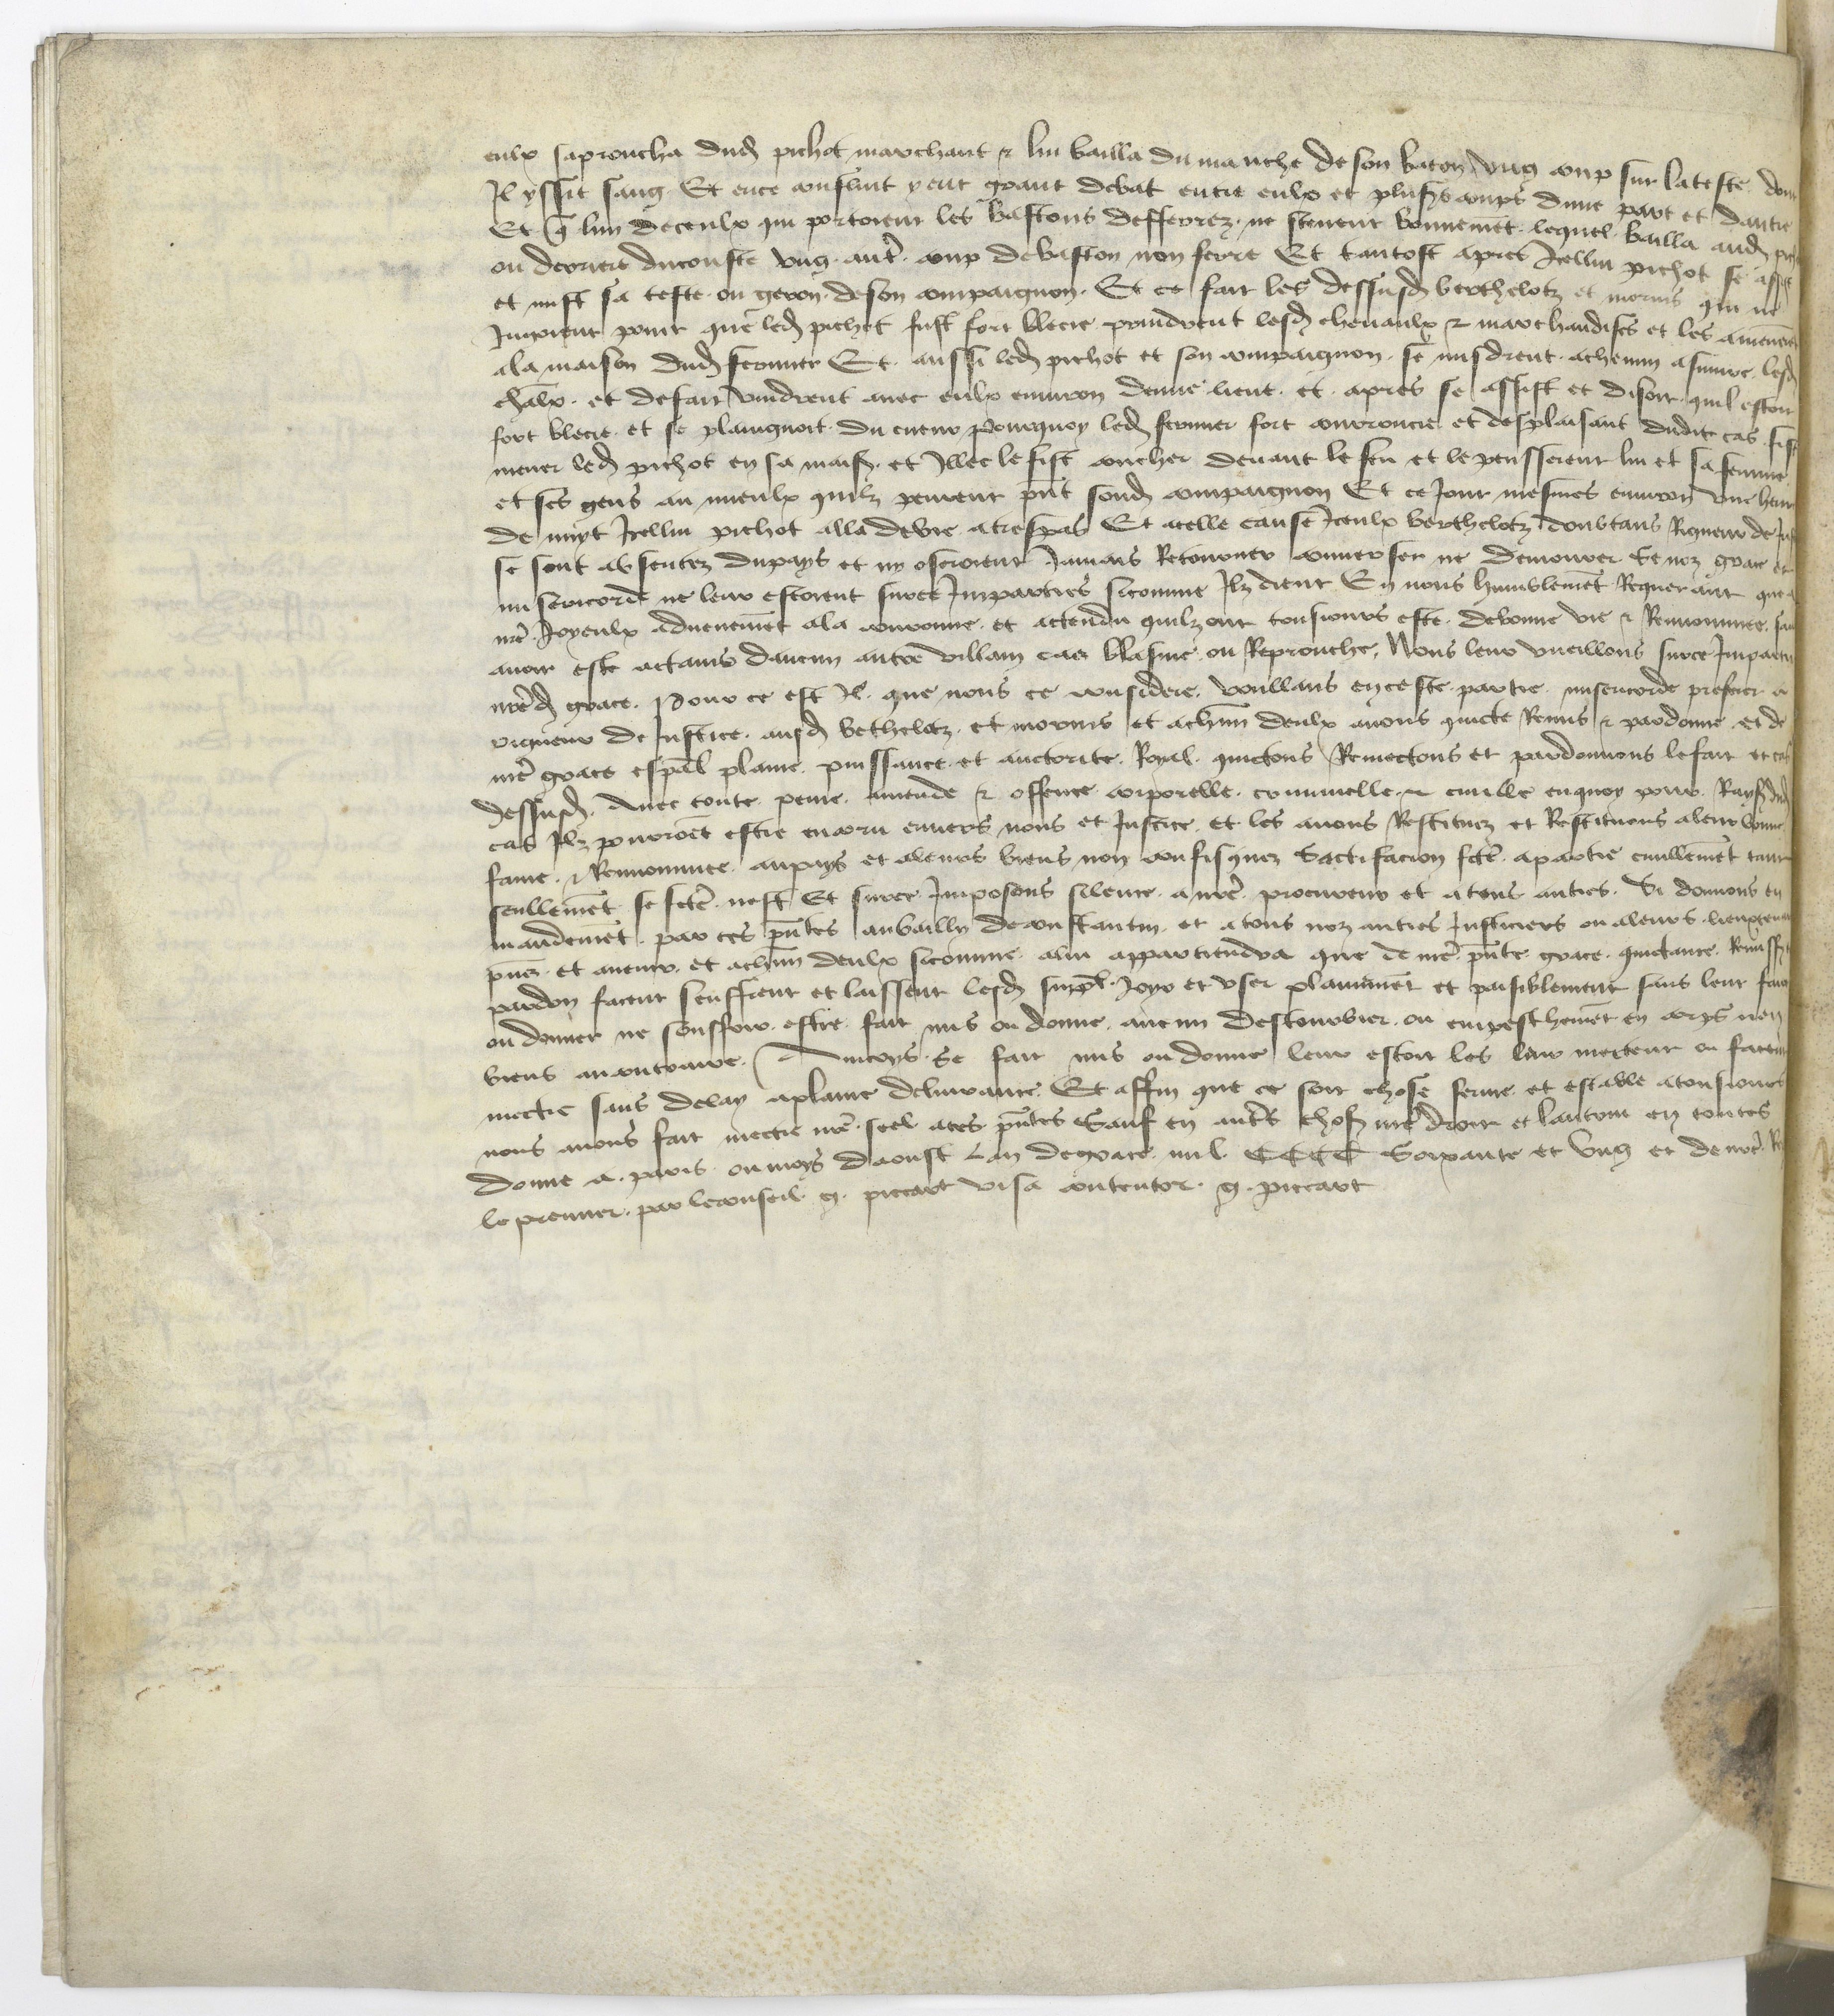 eulx saproucha dud pichot marchant & lui bailla du manche de son baton ung coup sur la teste dont
Il yssit sang Et en ce conflint y eut grant debat entre eulx et plus's coups dune part et dautre
Et q̃ lun deceulx qui portoient les bastons defferrez ne scevent bonnemēt lequel bailla aud
ou derriere du couste ung autr̃ coup de baston non ferre Et tantost apres Icellui pichot se assist
et mist sa teste ou geron de son compaignon Et ce fait les dessusd berthelotz et mornis qui ne
cuidoient point que led pichot fust fort blecie prindrent lesd chevaulx & marchandises et les amenerēt
ala maison dud fermier Et aussi led pichot et son compaignon se misdrent achemin asuivre lesd
chāulx et defait vindrent avec eulx environ demie lieue et apres se assist et disoit quil estoit
fort blecie et se plaingnoit du cueur Pourquoy led fermier fort courroucie et desplaisant dudit cas fist
mener led pichot en sa mais et Illec le fist coucher devant le feu et le pensserent lui et sa femme
et ses gens au mieulx quilz peurent pn̄t sond compaignon Et ce Jour mesmes environ une heure
de nuyt Icellui pichot alla de vie a trespas Et acelle cause Iceulx berthelotz doubtans Rigueur de
se sont absentez du pays et ny oseroient Jamais Retourner converser ne demourer se noz grace et
misericorde ne leur estoient surce Imparties sicomme Ilz dient En nous humblemēt Requerant que a
nr̃e Joyeulx advenemēt ala couronne et actendu quilz ont tousiours este debonne vie & Renommee sans
avoir este actains daucun autre villain cas blasme ou Reprouche Nous leur vueillons surce Impartir
nr̃ed grace Pour ce est Il que nous ce considere voullans en ceste partie misericorde preferer a
rigueur de Justice ausd bethelotz et mornis et achūn deulx avons quicte Remis & pardonne et de
nr̃e grace esp̄al plaine puissance et auctorite Royal quictons Remectons et pardonnons le fait et cas
dessusd avec toute peine amende & offence corporelle criminelle & civille enquoy pour Rais dud
cas Ilz pourroiēt estre encoru envers nous et Justice et les avons Restituez et Restituons aleur bonne
fame & Renommee au pays et aleurs biens non confisquez Sactifacion fcte apartie civillemēt tant
seullemēt se fcte nest Et surce Imposons silence a nr̃e procureur et atous autres Si donnons en
mandemēt par ces pn̄tes au bailly de constantin et atous noz autres Justiciers ou aleurs lieuxtenans
pn̄s et avenir et achūn deulx sicomme alui appartiendra que de nr̃e pn̄te grace quictance Remiss et
pardon facent seuffrent et laissent lesd suppl Joyr et user plainemēt et paisiblement sans leur faire
ou donner ne souffrir estre fait mis ou donne aucun destourbier ou empeschemēt en corps nen
biens au contraire Aincoys se fait mis ou donne leur estoit les leur mettent ou facent
mectre sans delay aplaine delivrance Et affin que ce soit chose ferme et estable atousiours
nous avons fait mectre nr̃e seel aces pn̄tes Sauf en autr̃s chos nr̃e droit et lautrui en toutes
Donne a paris ou moys daoust Lan de grace mil CCCC Soixante et ung et de nr̃e
le premier par le conseil g. piccart visa contentor g. piccart